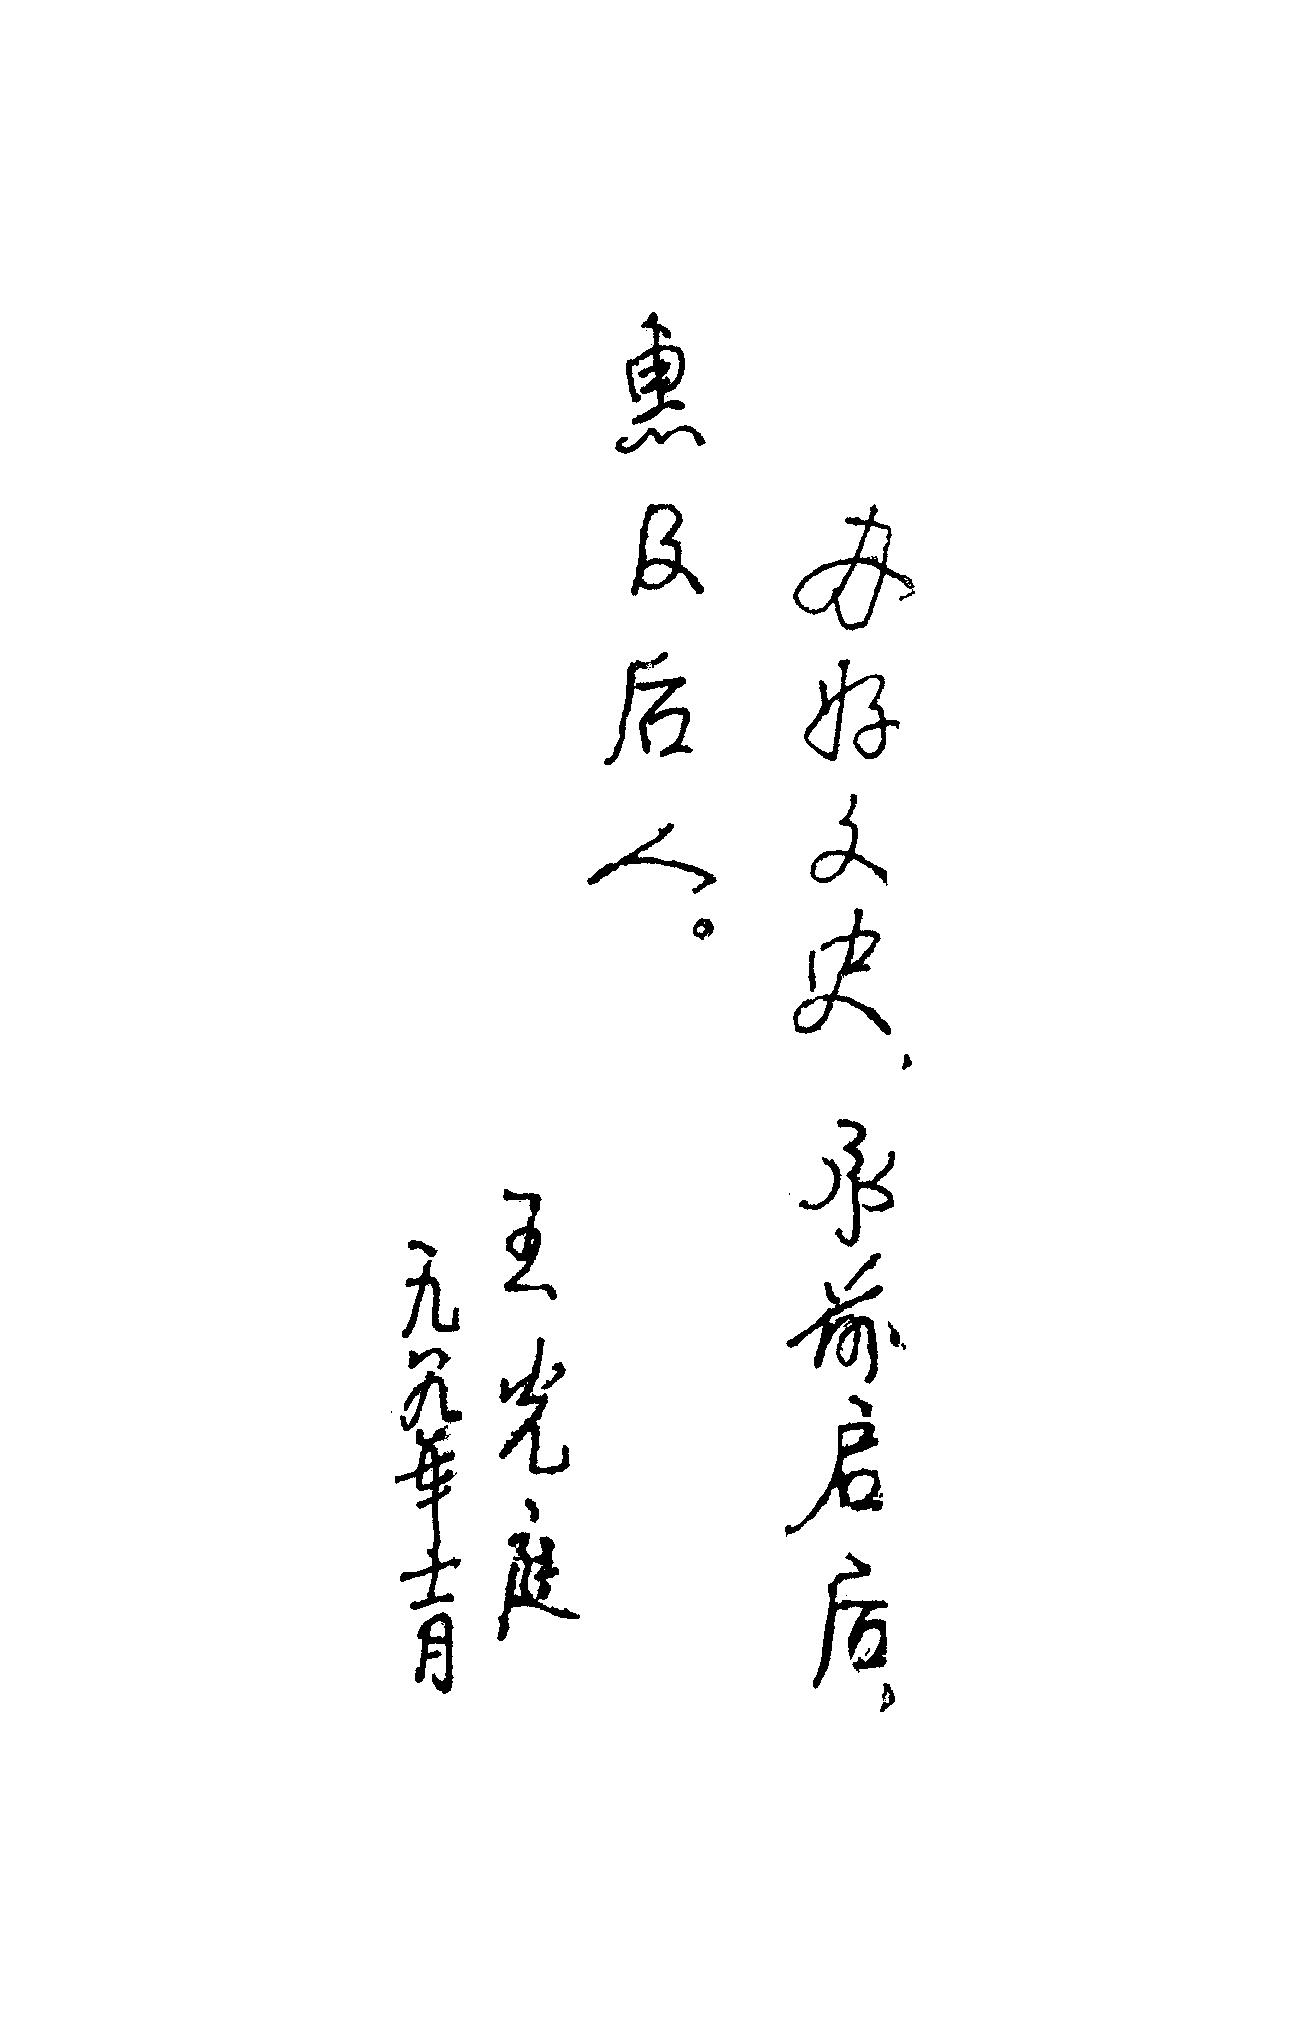 办好文史，承前启后，
惠及后人。
王光庭
一九九九年十一月